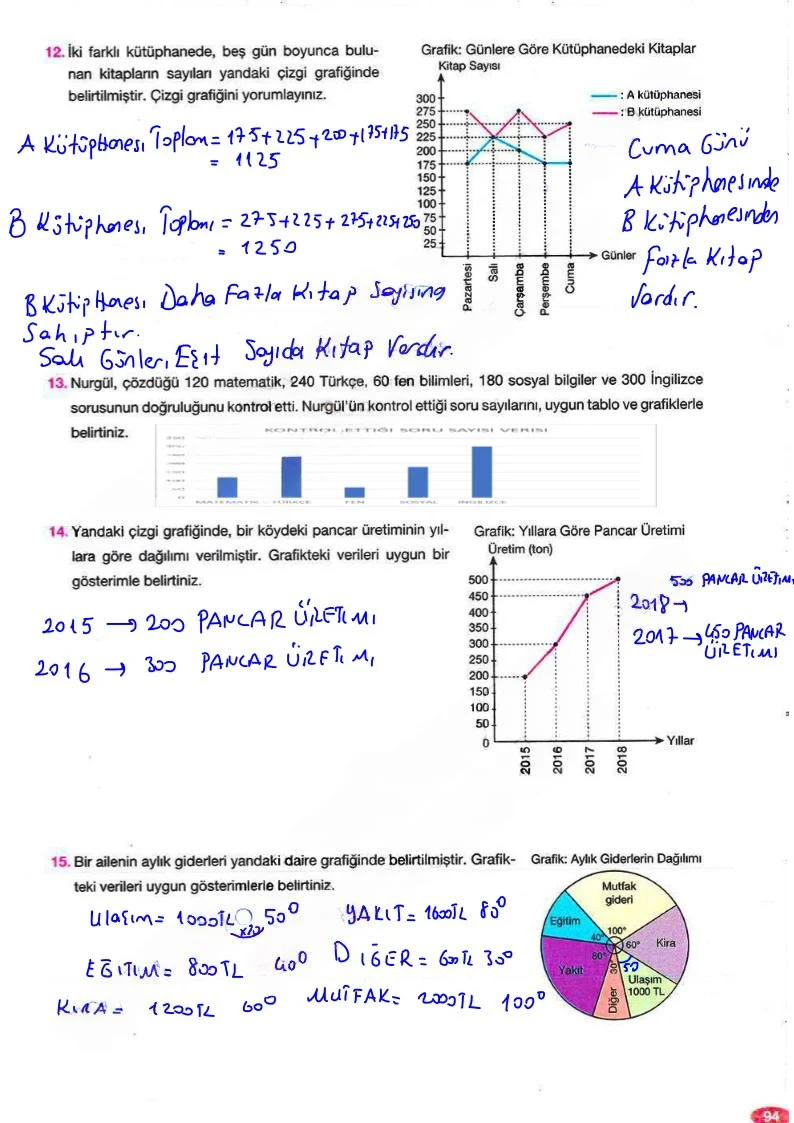 12. İki farklı kütüphanede, beş gün boyunca bulu-
nan kitapların sayıları yandaki çizgi grafiğinde
belirtilmiştir. Çizgi grafiğini yorumlayınız.
A Kütüphanesi Toplam = 175+225+200+175+175
= 1125
B Kütüphanesi Toplamı = 275+225+275+225+250
= 1250
B Kütüphanesi Daha Fazla Kitap Sayısına
Sahiptir.
Salı Günleri Eşit Sayıda Kitap Vardır.
Grafik: Günlere Göre Kütüphanedeki Kitaplar
Kitap Sayısı
: A kütüphanesi
: B kütüphanesi
300
275
250
225
200
175
150
125
100
75
50
25
Günler
Pazartesi
Salı
Çarşamba
Perşembe
Cuma
Cuma Günü
A Kütüphanesinde
B Kütüphanesinden
fazla Kitap
Vardır.
13. Nurgül, çözdüğü 120 matematik, 240 Türkçe, 60 fen bilimleri, 180 sosyal bilgiler ve 300 İngilizce
sorusunun doğruluğunu kontrol etti. Nurgül'ün kontrol ettiği soru sayılarını, uygun tablo ve grafiklerle
belirtiniz.
KONTROL ETTİĞİ SORU SAYISI VERİSİ
MATEMATİK TÜRKÇE FEN SOSYAL İNGİLİZCE
14. Yandaki çizgi grafiğinde, bir köydeki pancar üretiminin yıl-
lara göre dağılımı verilmiştir. Grafikteki verileri uygun bir
gösterimle belirtiniz.
2015 → 200 PANCAR ÜRETİMİ
2016 → 300 PANCAR ÜRETİMİ
Grafik: Yıllara Göre Pancar Üretimi
Üretim (ton)
500
450
400
350
300
250
200
150
100
50
0
Yıllar
2015
2016
2017
2018
500 PANCAR ÜRETİMİ
2018 →
2017 → 450 PANCAR
ÜRETİMİ
15. Bir ailenin aylık giderleri yandaki daire grafiğinde belirtilmiştir. Grafik-
teki verileri uygun gösterimlerle belirtiniz.
Ulaşım = 1000TL 50°
x20
YAKIT = 1600TL 80°
EĞİTİM = 800TL 40°
DİĞER = 600TL 30°
KİRA = 1200TL 60°
MUTFAK = 2000TL 100°
Grafik: Aylık Giderlerin Dağılımı
Mutfak
gideri
Eğitim
100°
40°
60°
Kira
80°
30°
50
Yakıt
Ulaşım
1000 TL
Diğer
94